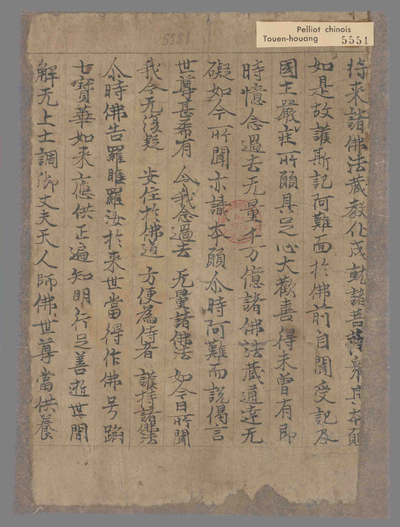 Pelliot chinois
Touen-houang 5551
5551
将来諸佛法藏教化成就諸菩薩衆其本願
如是故護斯記阿難面於佛前自聞受記及
國土嚴莊所願具足心大歡喜得未曾有即
時憶念過去无量千万億諸佛法藏通達无
礙如今所聞亦識本願尒時阿難而說偈言
世尊甚希有 令我念過去 无量諸佛法 如今日所聞
我今无復疑 安住於佛道 方便為侍者 護持諸佛法
尒時佛告羅睺羅汝於来世當得作佛号蹈
七寶華如来應供正遍知明行足善逝世間
解无上士調御丈夫天人師佛世尊當供養